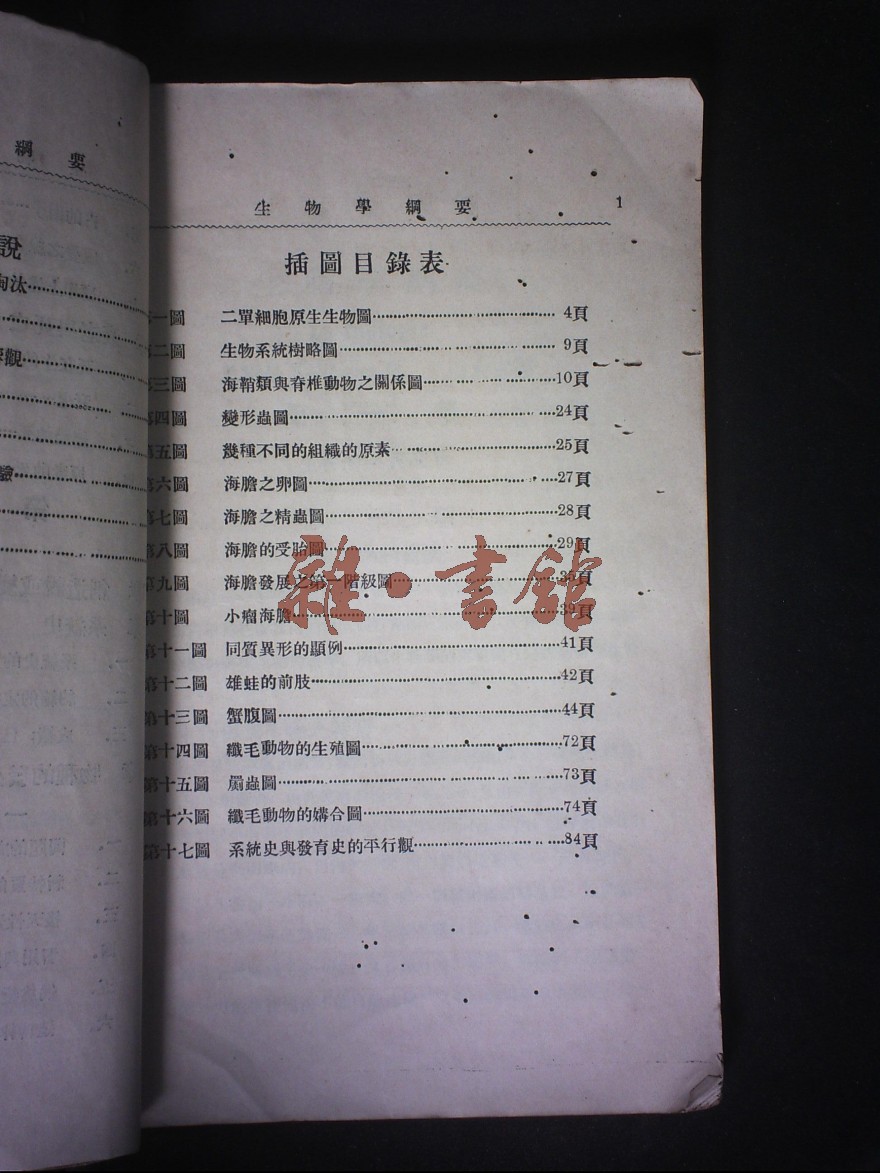 綱要
說
淘汰
觀
驗
生物學綱要 1
插圖目錄表
第一圖 二單細胞原生生物圖 4頁
第二圖 生物系統樹略圖 9頁
第三圖 海鞘類與脊椎動物之關係圖 10頁
第四圖 變形蟲圖 24頁
第五圖 幾種不同的組織的原素 25頁
第六圖 海膽之卵圖 27頁
第七圖 海膽之精蟲圖 28頁
第八圖 海膽的受胎圖 29頁
第九圖 海膽發展之第一階級圖 頁
第十圖 小瘤海膽 39頁
第十一圖 同質異形的顯例 41頁
第十二圖 雄蛙的前肢 42頁
第十三圖 蟹腹圖 44頁
第十四圖 纖毛動物的生殖圖 72頁
第十五圖 蟲圖 73頁
第十六圖 纖毛動物的媾合圖 74頁
第十七圖 系統史與發育史的平行觀 84頁
雜·書館